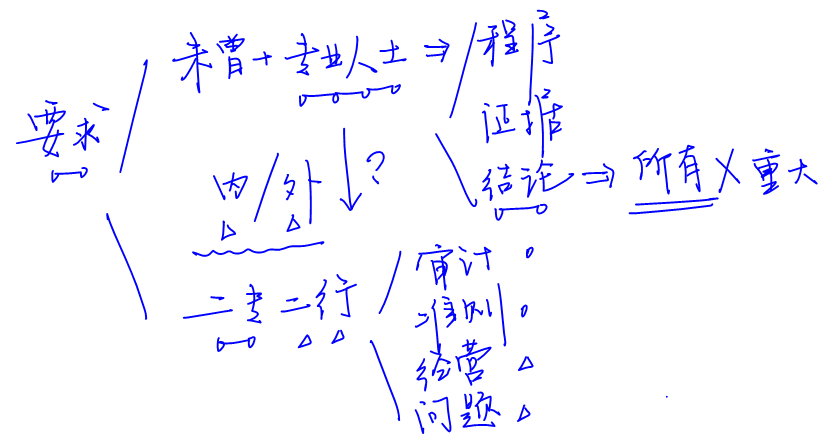 要求
未曾+专业人士⇒
程序
证据
结论⇒所有×重大
内/外 ?
二专二行
审计
准则
经营
问题